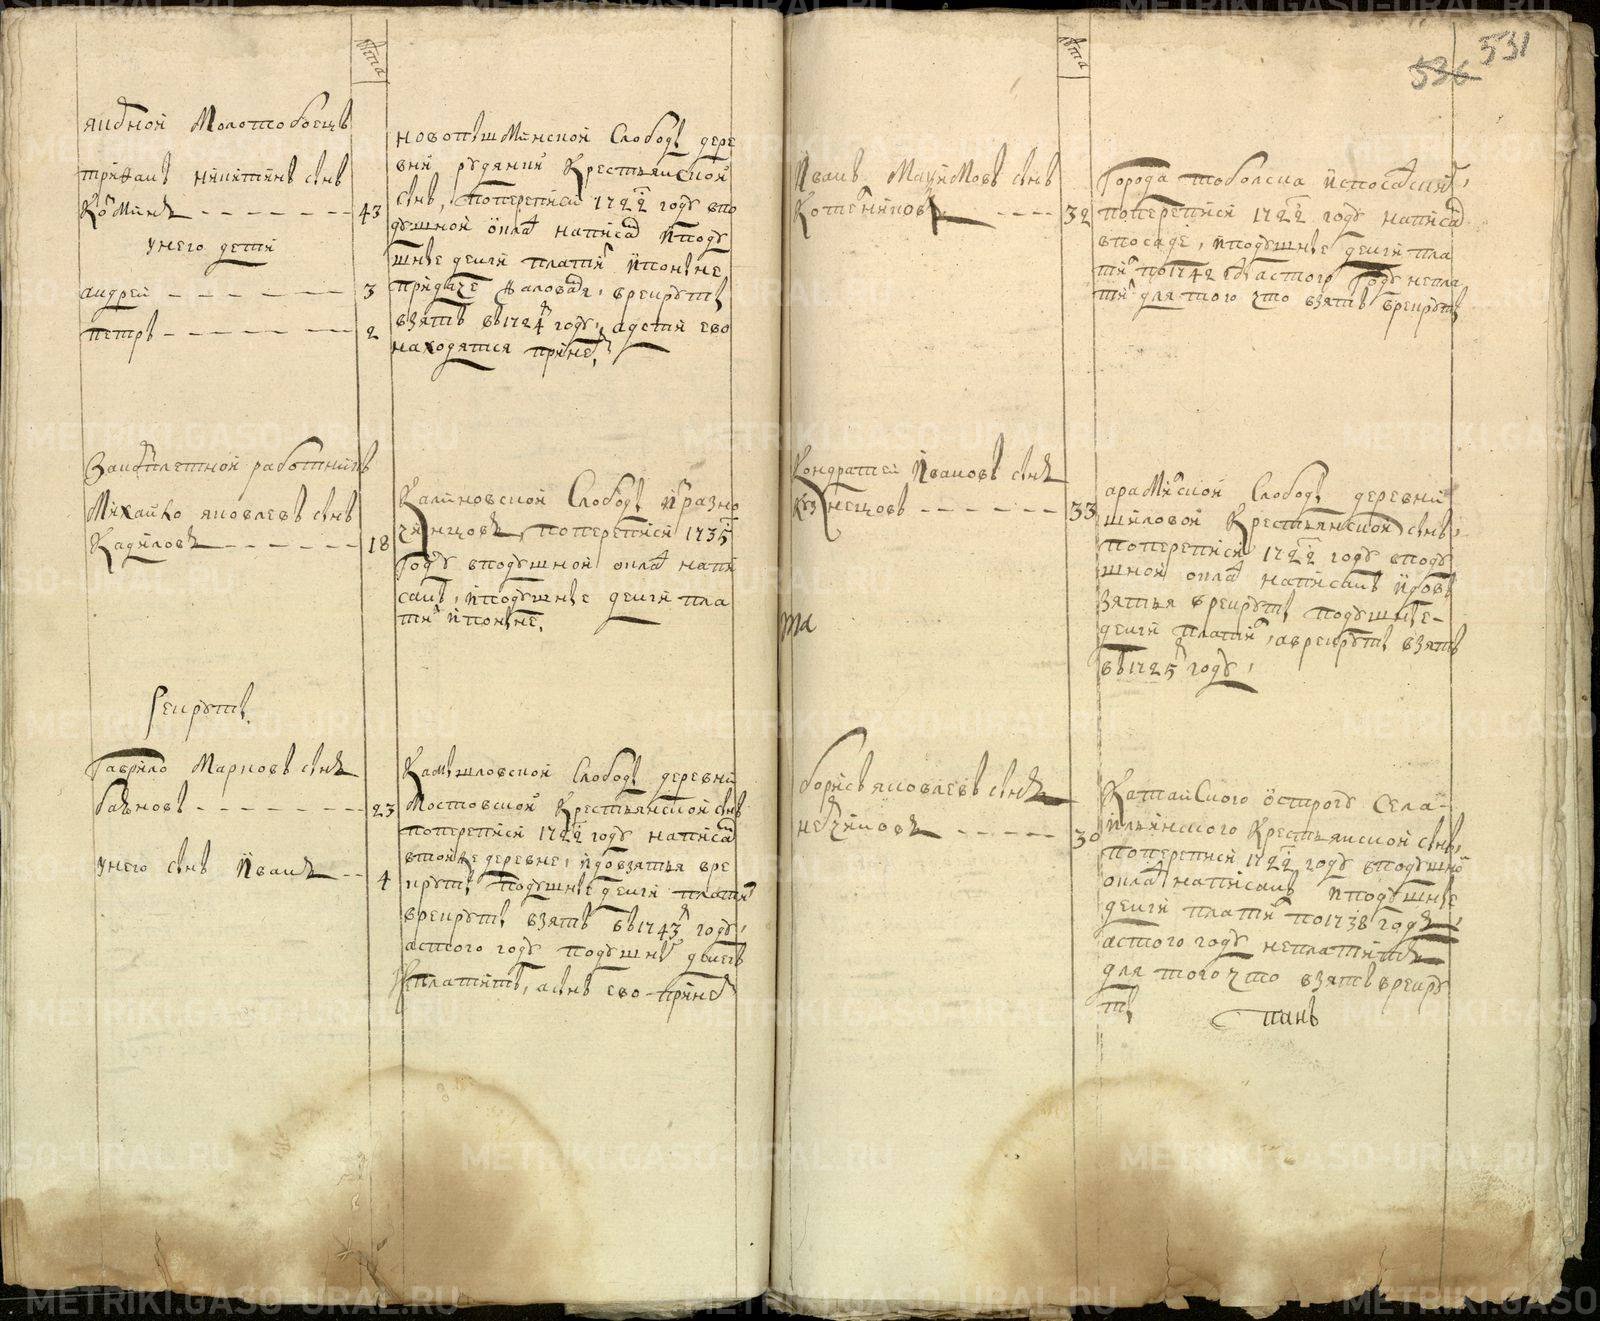 лета
якорной Молотобоецъ
трифанъ никитинъ снъ
Козминъ 43
унего дети
андрей 3
петръ 2
новопышминской Слободы дере
вни рудянки Крестьянской
снъ, попереписи 1722 году впо
душной окладъ написанъ иподу
шные денги платитъ ипоныне
взятъ въ 1724м году, адети ево
находятся принемъ,
работникъ
Михайло яковлевъ снъ
Кадиловъ 18
Калиновской Слободы изразно
чинцовъ, попереписи 1735
году вподушной окладъ напи
санъ, иподушные денги пла
титъ ипоныне,
Рекруты
Гаврило Марковъ снъ
баиновъ 23
унего снъ Иванъ 4
Камышловской Слободы деревни
Мостовской Крестьянской снъ
попереписи 1722 году написанъ
втойже деревне, идовзятья вре
круты подушные денги платилъ
врекруты взятъ въ 1743м году,
астого году подушныхъ денегъ
Неплатитъ, аснъ ево принемъ
лета
536 531
Иванъ Маѯимовъ снъ
Котелниковъ 32
Города тоболска ипосацкихъ,
попереписи 1722 году написанъ
впосаде, иподушные денги пла
тилъ по 1742 годъ астого Году непла
титъ для того что взятъ врекруты
Кондратей Ивановъ снъ
Кузнецовъ 33
арамилской Слободы деревни
шиловой Крестьянской снъ,
попереписи 1722 году вподу
шной окладъ написанъ идовъ
зятья врекруты подушные
денги платилъ, аврекруты взятъ
въ 1725м году,
та
борисъ яковлевъ снъ
30
Катайского острогу Села
ильинского Крестьянской снъ,
попереписи 1722 году вподушной
окладъ написанъ иподушные
денги платилъ по 1738 годъ,
астого году неплатитъ
для того что взятъ врекру
ты